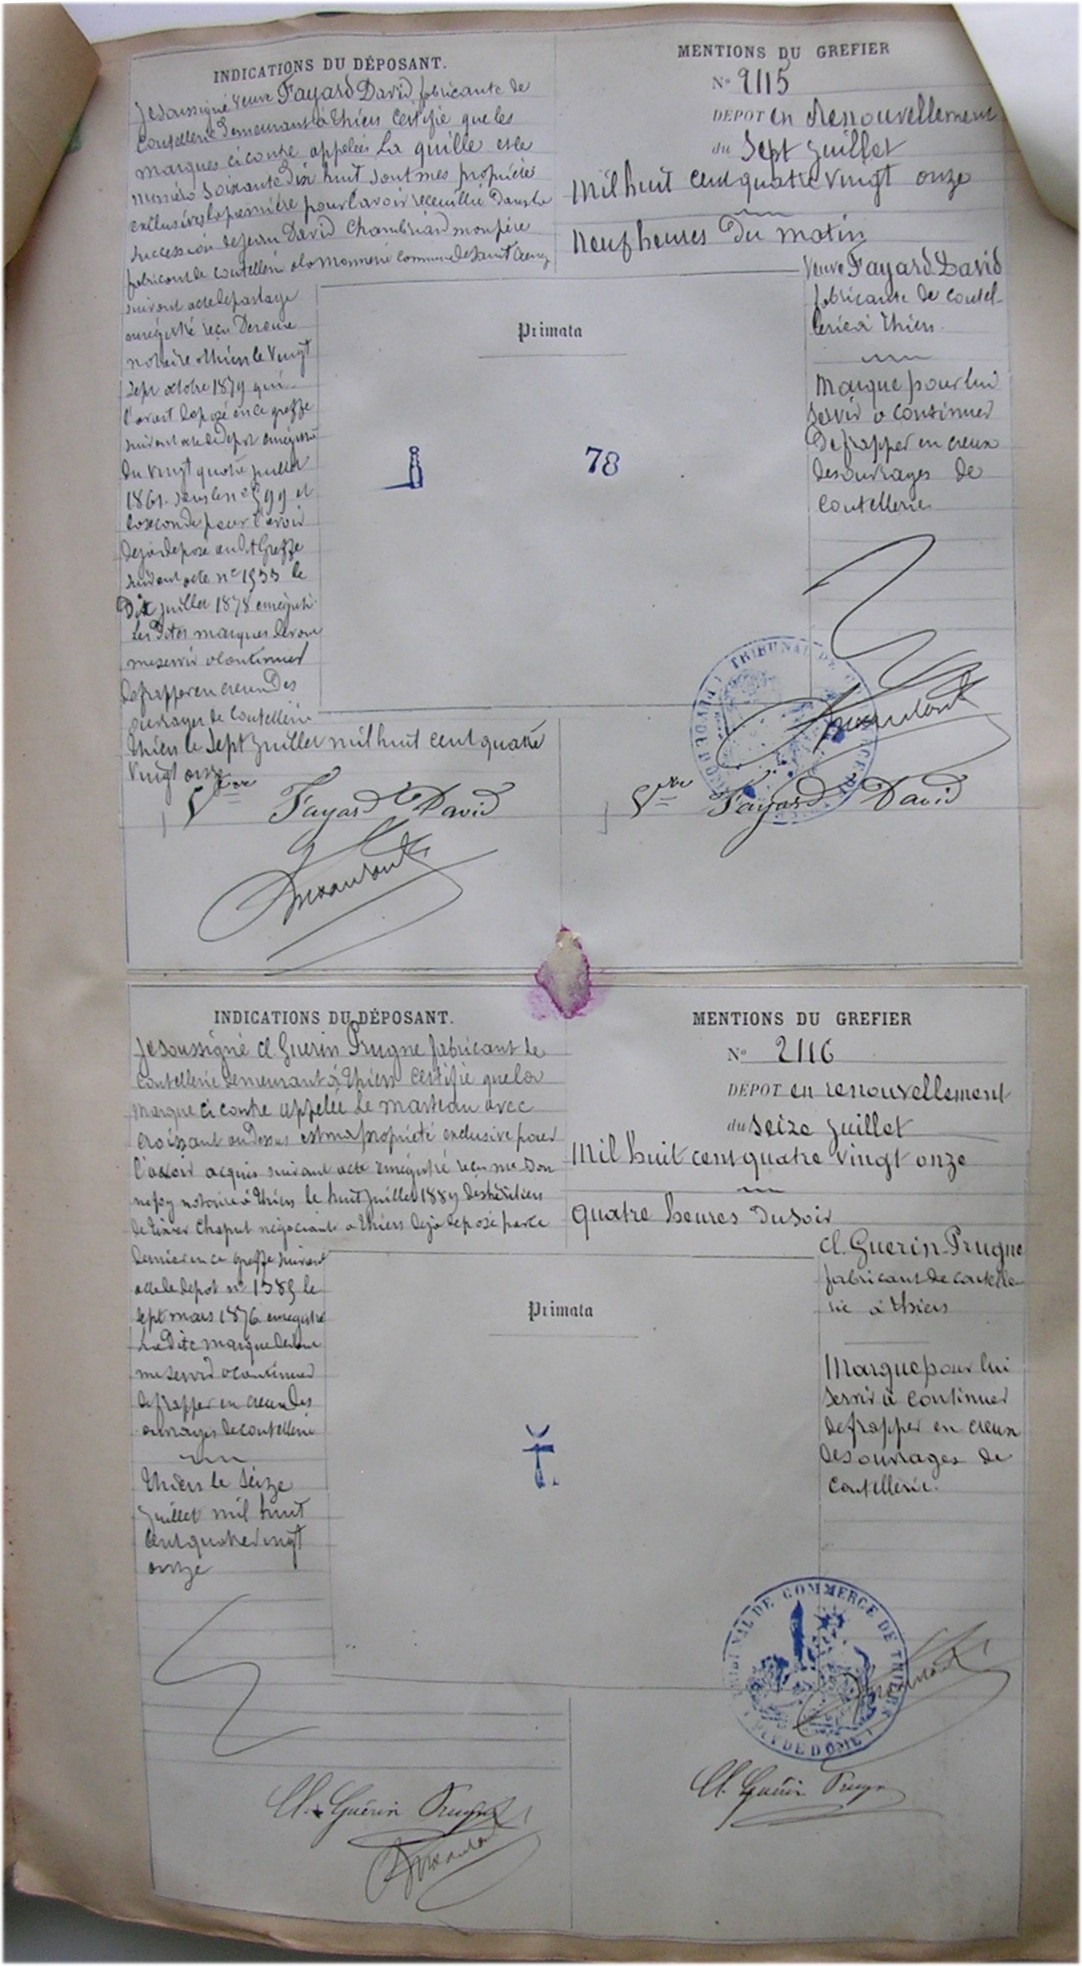 INDICATIONS DU DÉPOSANT.
Je soussigné Veuve Fayard David fabricante de
Coutellerie demeurant à Thiers Certifie que les
marques ci contre appelées La quille et le
numéro Soixante Dix huit sont mes propriétés
exclusives la première pour l'avoir recueillie dans la
succession de Jean David Chambriard mon père
fabricant de coutellerie commune de Saint
suivant acte de partage
enregistré reçu
notaire à Thiers le Vingt
sept octobre 1879 qui
l'avait déposé en ce greffe
suivant acte de dépôt enregistré
du vingt quatre juillet
1861 sous le n° 599 et
la seconde pour l'avoir
déjà déposé au dt Greffe
suivant acte n° 1533 le
Dix juillet 1878 enregistré
Les dites marques devront
me servir à continuer
de frapper en creux des
ouvrages de Coutellerie
Thiers le Sept Juillet mil huit cent quatre
Vingt onze
Vve Fayard David
MENTIONS DU GREFIER
No 2115
DÉPOT en Renouvellement
du Sept Juillet
Mil huit cent quatre vingt onze
Neuf heures du matin
Veuve Fayard David
fabricante de coutel-
lerie à Thiers
Marque pour lui
servir à continuer
de frapper en creux
des ouvrages de
Coutellerie
Primata
78
Vve Fayard David
INDICATIONS DU DÉPOSANT.
Je soussigné Cl. Guerin Prugne fabricant de
coutellerie demeurant à Thiers certifie que la
marque ci contre appelée Le marteau avec
croissant au dessus est ma propriété exclusive pour
l'avoir acquis suivant acte enregistré reçu me Don
notaire à Thiers le huit Juillet 1889 des héritiers
de Chaput négociant à Thiers déjà déposé par ce
dernier en ce greffe suivant
acte de dépôt n° 1385 le
sept mars 1876 enregistré
La dite marque devant
me servir à continuer
de frapper en creux des
ouvrages de coutellerie
Thiers le Seize
Juillet mil huit
cent quatre vingt
onze
Cl. Guérin Prugne
MENTIONS DU GREFIER
No 2116
DÉPOT en renouvellement
du seize Juillet
Mil huit cent quatre vingt onze
Quatre heures du soir
Cl. Guerin-Prugne
fabricant de coutelle-
rie à Thiers
Marque pour lui
servir à continuer
de frapper en creux
des ouvrages de
Coutellerie.
Primata
TRIBUNAL DE COMMERCE DE THIERS
PUY DE DOME
Cl. Guérin Prugne